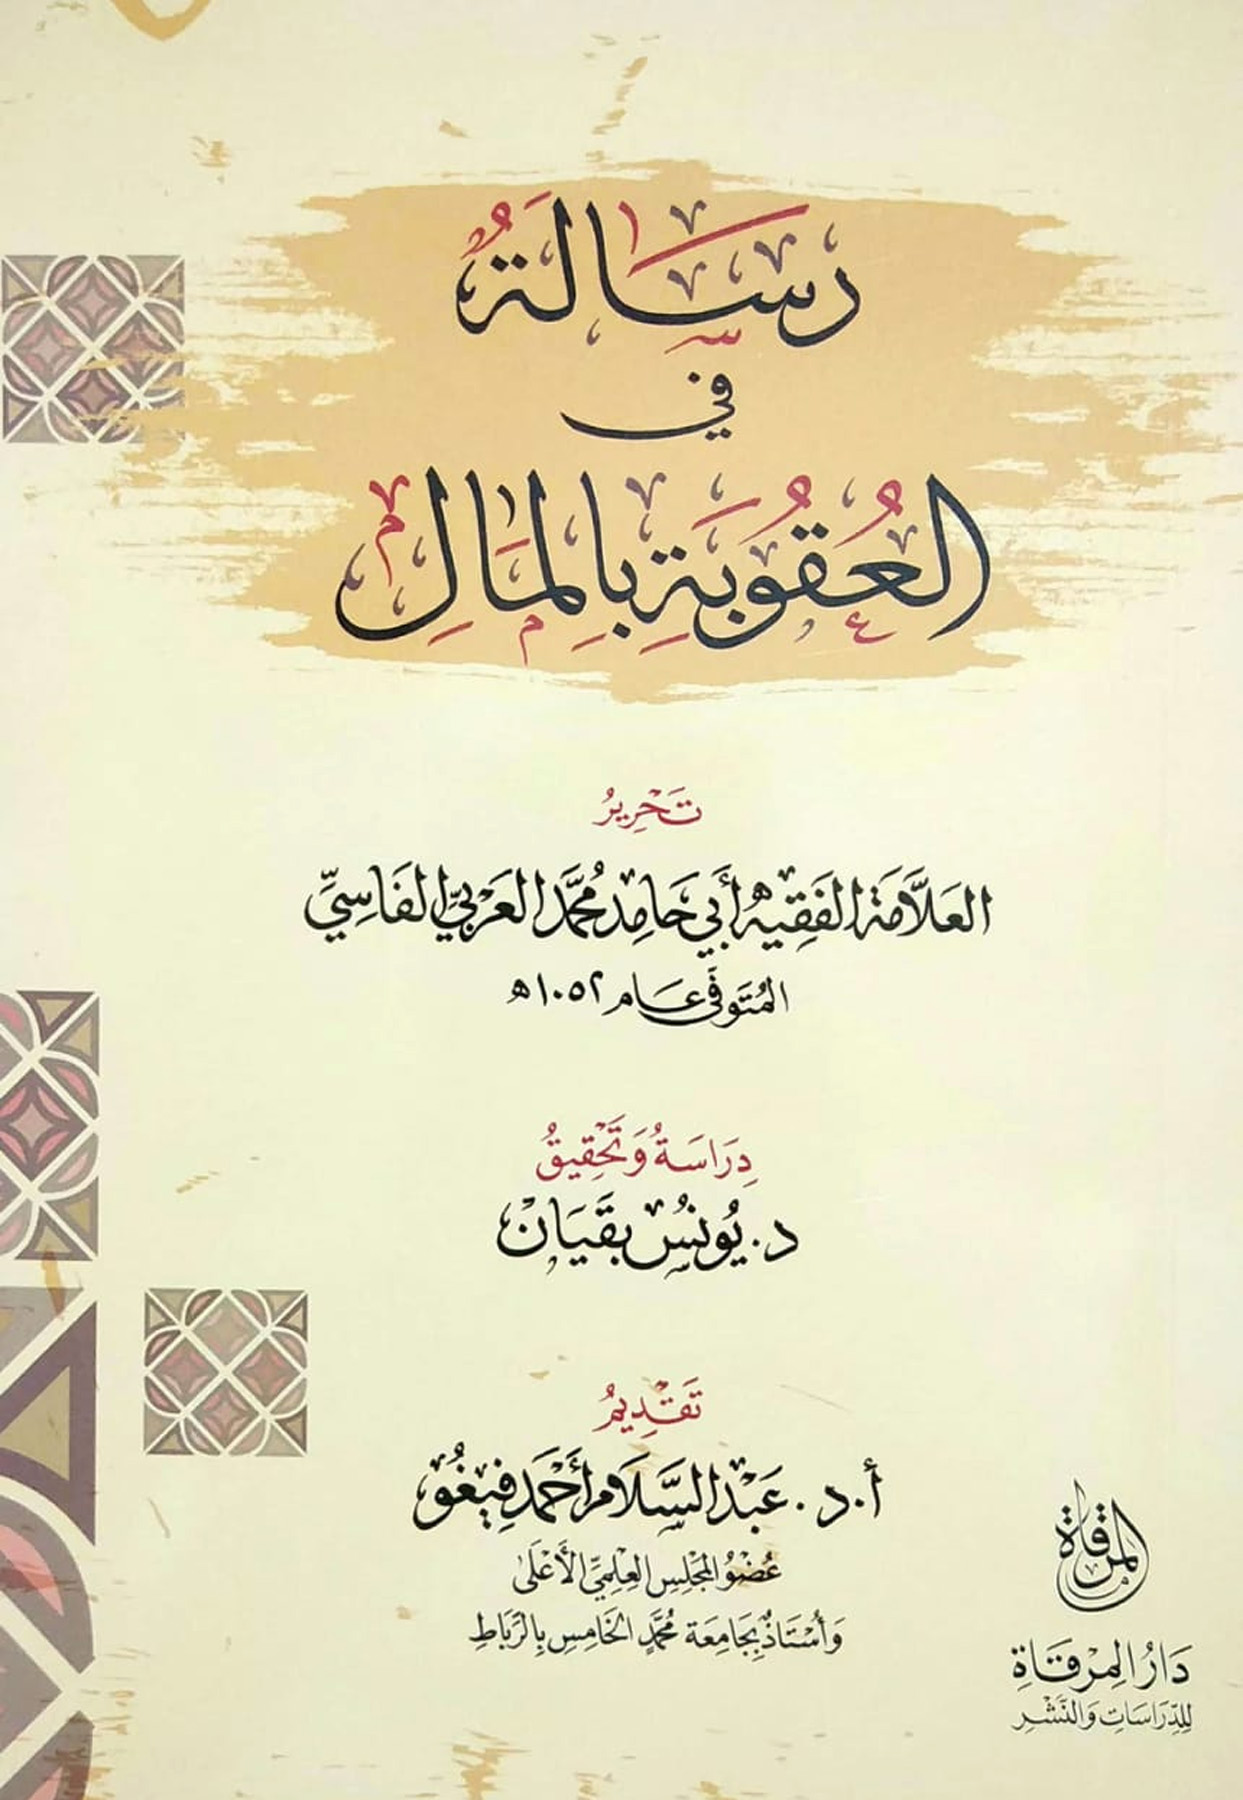 رِسَالَةٌ
فِي
العُقُوبَةِ بِالمَالِ
تَحْرِيرُ
العَلَّامَة الفَقِيه أَبِي حَامِد مُحَمَّد العَرَبِيّ الفَاسِيِّ
المُتَوَفَّى عَام ١٠٥٢ هـ
دِرَاسَةُ وَتَحْقِيقُ
د. يُونُس بقَيَان
تَقْدِيمُ
أ.د. عَبْد السَّلَام أَحْمَد فيغُو
عُضْوُ المَجْلِسِ العِلْمِيِّ الأَعْلَى
وَأُسْتَاذٌ بِجَامِعَة مُحَمَّدٍ الخَامِسِ بِالرِّبَاطِ
المرقاة
دَارُ المِرْقَاةِ
لِلدِّرَاسَاتِ وَالنَّشْرِ